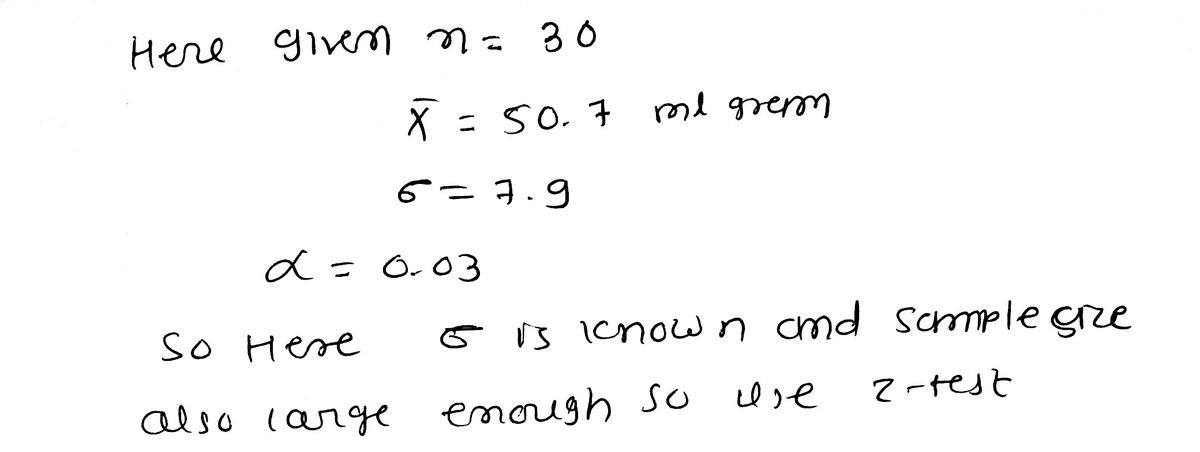 Here given n = 30
x̄ = 50.7 ml grem
σ = 7.9
α = 0.03
So Here σ is known and sample size
also large enough so use z-test